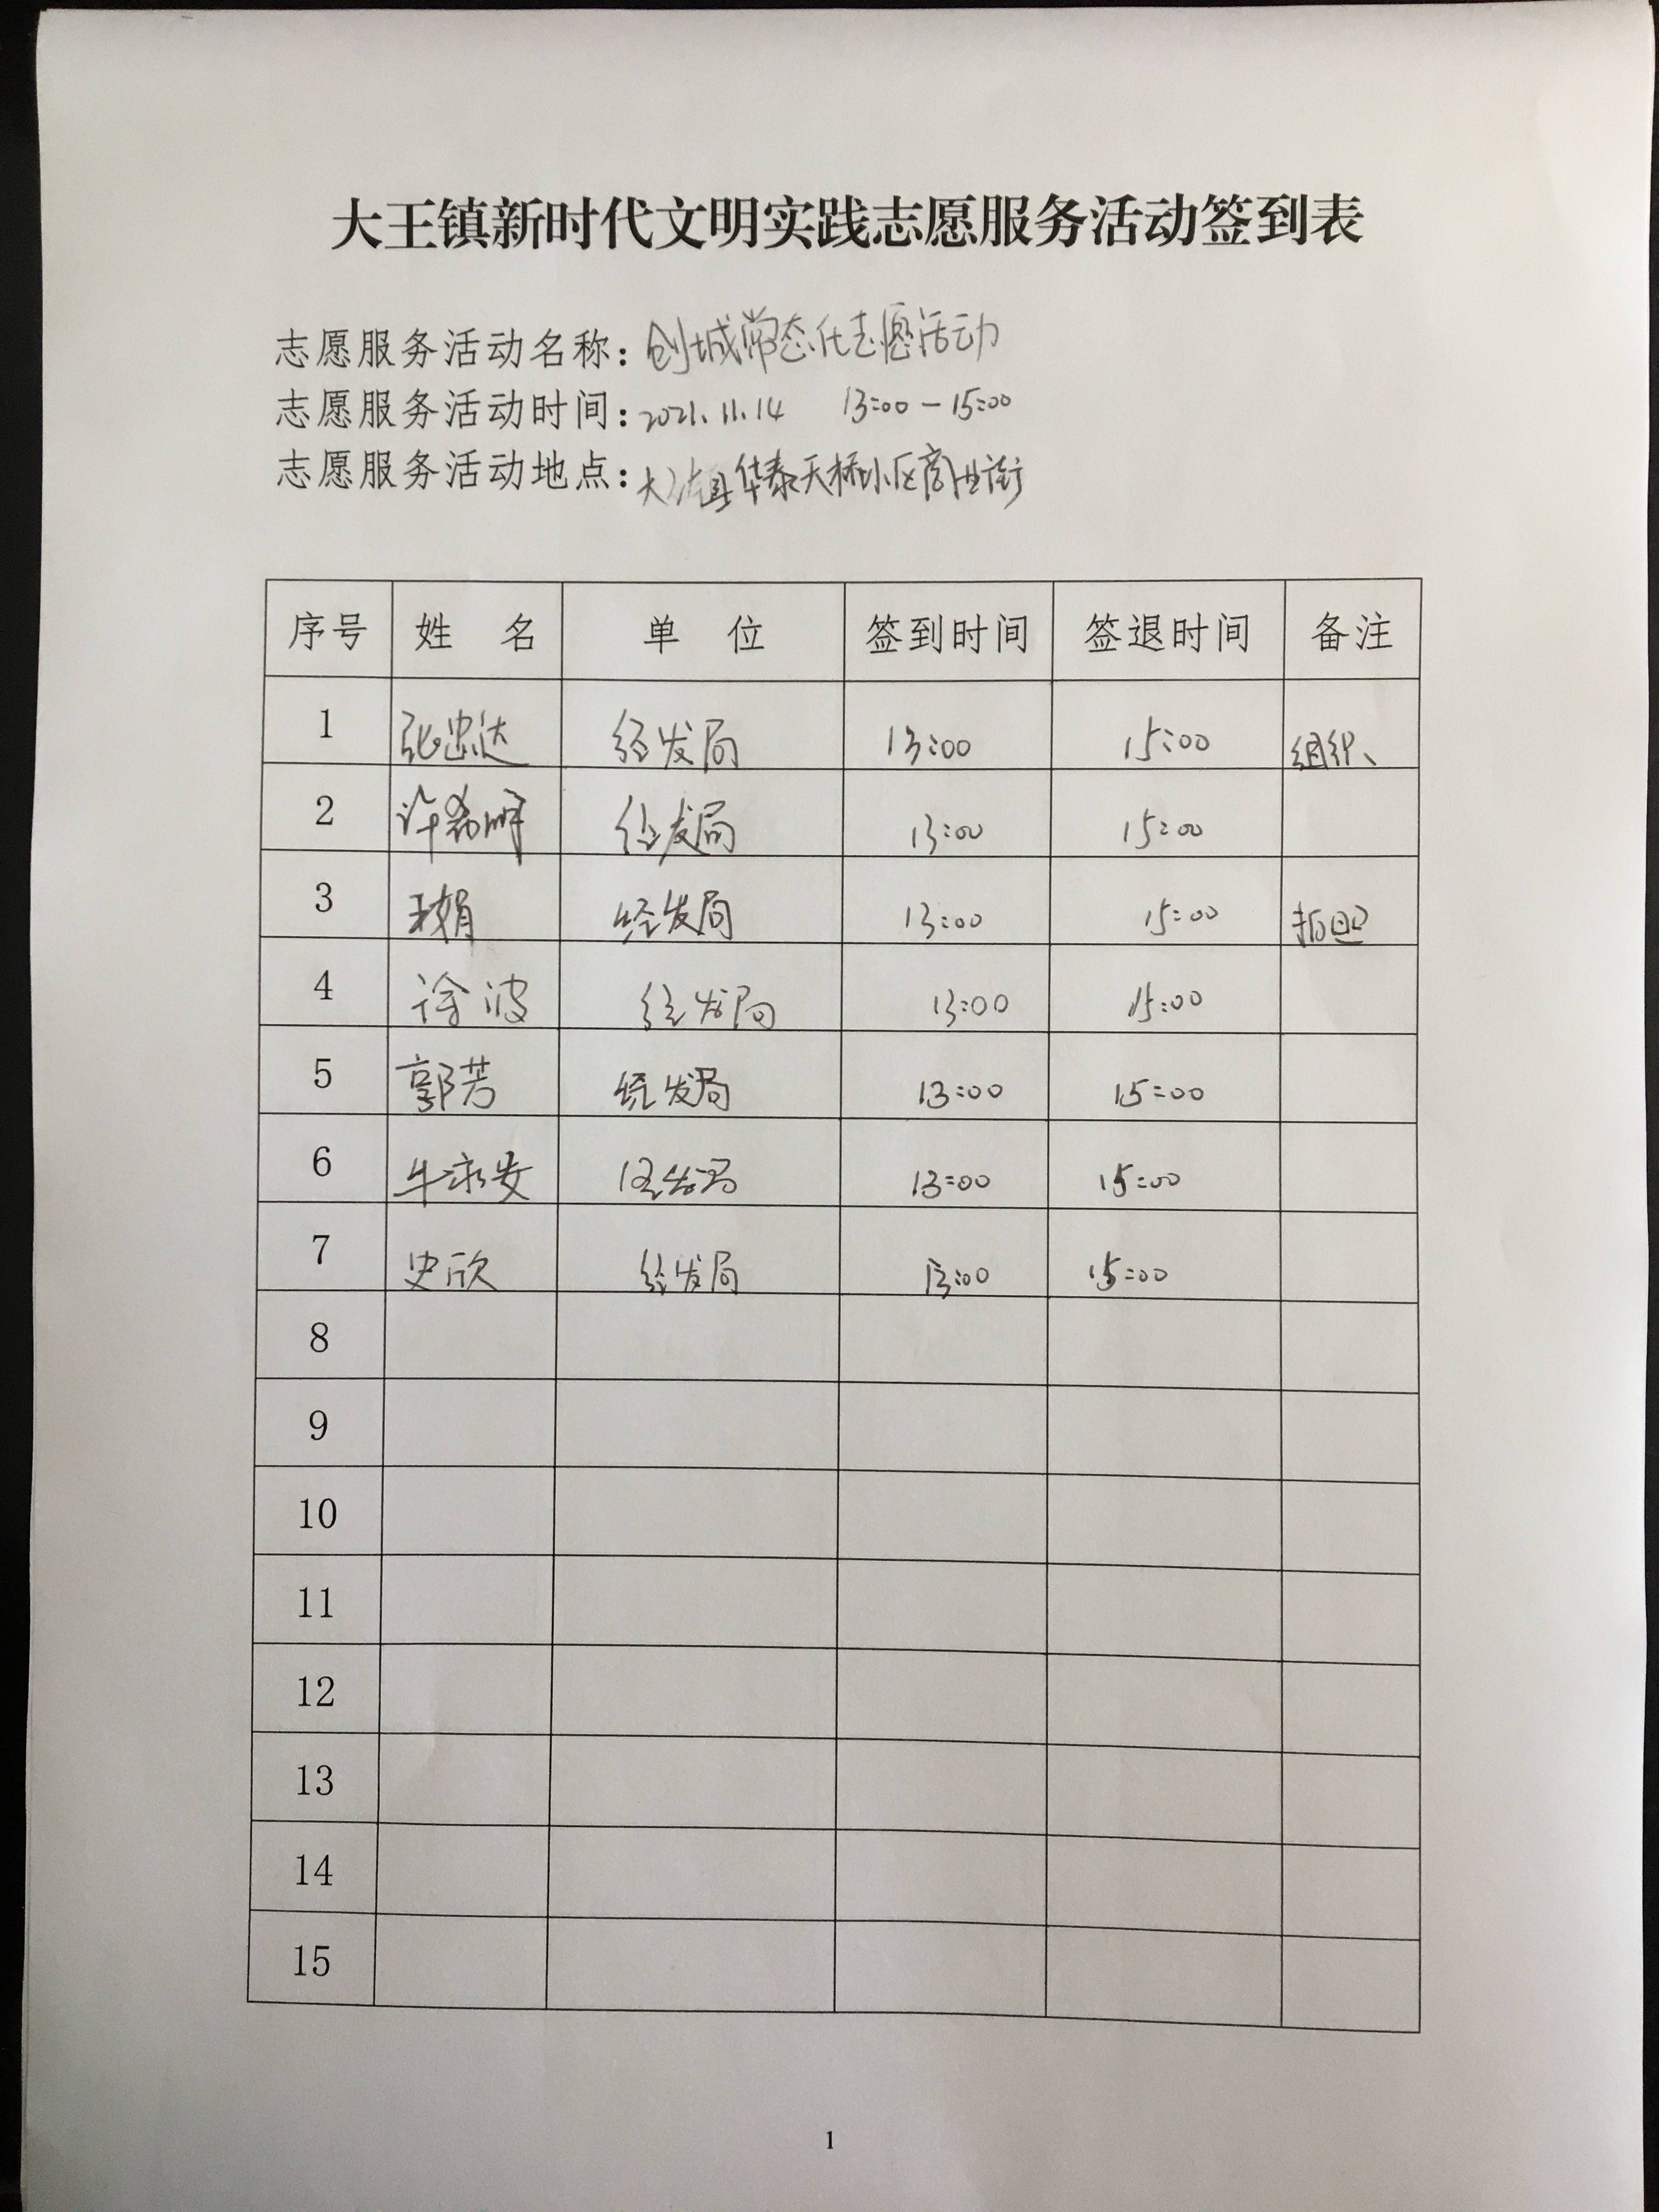 大王镇新时代文明实践志愿服务活动签到表
志愿服务活动名称：创城常态化志愿活动
志愿服务活动时间：2021.11.14 13:00－15:00
志愿服务活动地点：大王镇华泰天桥小区商业街
序号 姓 名 单 位 签到时间 签退时间 备注
1 张忠达 经发局 13:00 15:00 组织、
2 许希明 经发局 13:00 15:00
3 王娟 经发局 13:00 15:00 拍照
4 徐波 经发局 13:00 15:00
5 郭芳 经发局 13:00 15:00
6 牛永安 经发局 13:00 15:00
7 史欣 经发局 13:00 15:00
8
9
10
11
12
13
14
15
1